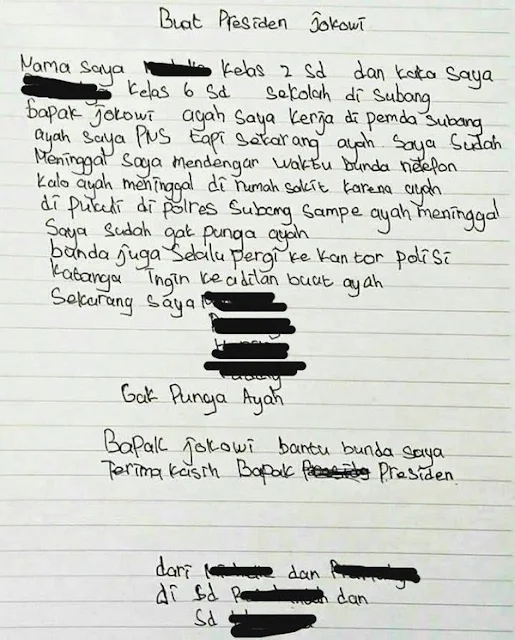 Buat Presiden Jokowi
Nama saya kelas 2 Sd dan kaka saya
kelas 6 Sd Sekolah di Subang
bapak jokowi ayah saya kerja di pemda subang
ayah saya PNS tapi sekarang ayah saya sudah
Meninggal saya mendengar waktu bunda nelefon
kalo ayah meninggal di rumah sakit karena ayah
di pukuli di polres Subang sampe ayah meninggal
Saya sudah gak punga ayah
banda juga selalu pergi ke kantor polisi
katanga ingin keadilan buat ayah
Sekarang saya
Gak Punga Ayah
Bapak jokowi bantu bunda saya
Terima kasih Bapak Presiden
dari dan
di Sd dan
Sd